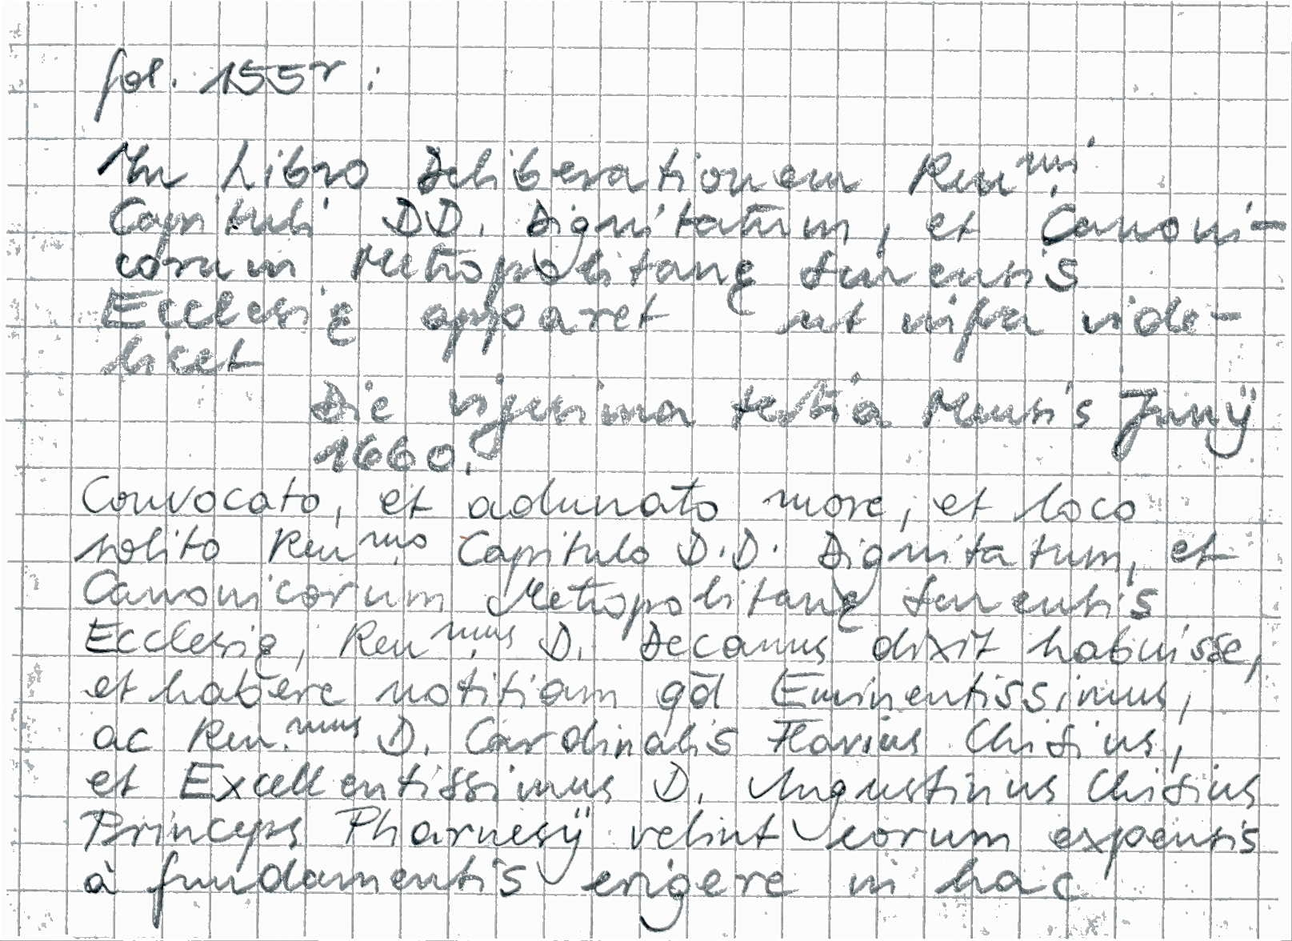 fol. 155r:
In Libro Deliberationem Reu^mi
Capituli DD. Dignitatum, et Canoni-
corum Metropolitanę Senensis
Ecclesię apparet ut infra vide-
licet
Die vigesima tertia Mensis Junÿ
1660.
Convocato, et adunato more, et loco
solito Reu^mo Capitulo D.D. Dignitatum, et
Canonicorum Metropolitanę Senensis
Ecclesię, Reu^mus D. Decanus dixit habuisse,
et habere notitiam qd̄ Eminentissimus,
ac Reu.^mus D. Cardinalis Flavius Chisius,
et Excellentissimus D. Augustinus Chisius
Princeps Pharnesÿ velint eorum expensis
à fundamentis erigere in hac